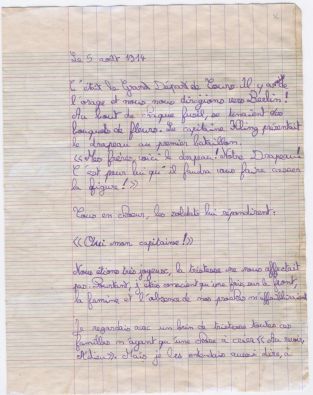 Le 5 août 1914
C'était le Grand Départ de Tours. Il y avait
l'orage et nous nous dirigions vers Berlin!
Au bout de chaque fusil, se tenaient des
bouquets de fleurs. Le capitaine Kling présentait
le drapeau au premier bataillon.
<<Mes frères, voici le drapeau! Notre Drapeau!
C'est pour lui qu'il faudra vous faire casser
la figure!>>
Tous en chœur, les soldats lui répondirent:
<<Oui mon capitaine!>>
Nous étions très joyeux, la tristesse ne nous affectait
pas. Pourtant, j'étais conscient qu'une fois sur le front,
la famine et l'absence de mes proches m'affaibliraient
Je regardais avec un brin de tristesse toutes ces
familles n'ayant qu'une chose à crier <<Au revoir,
Adieu>>. Mais je les entendais aussi dire, à